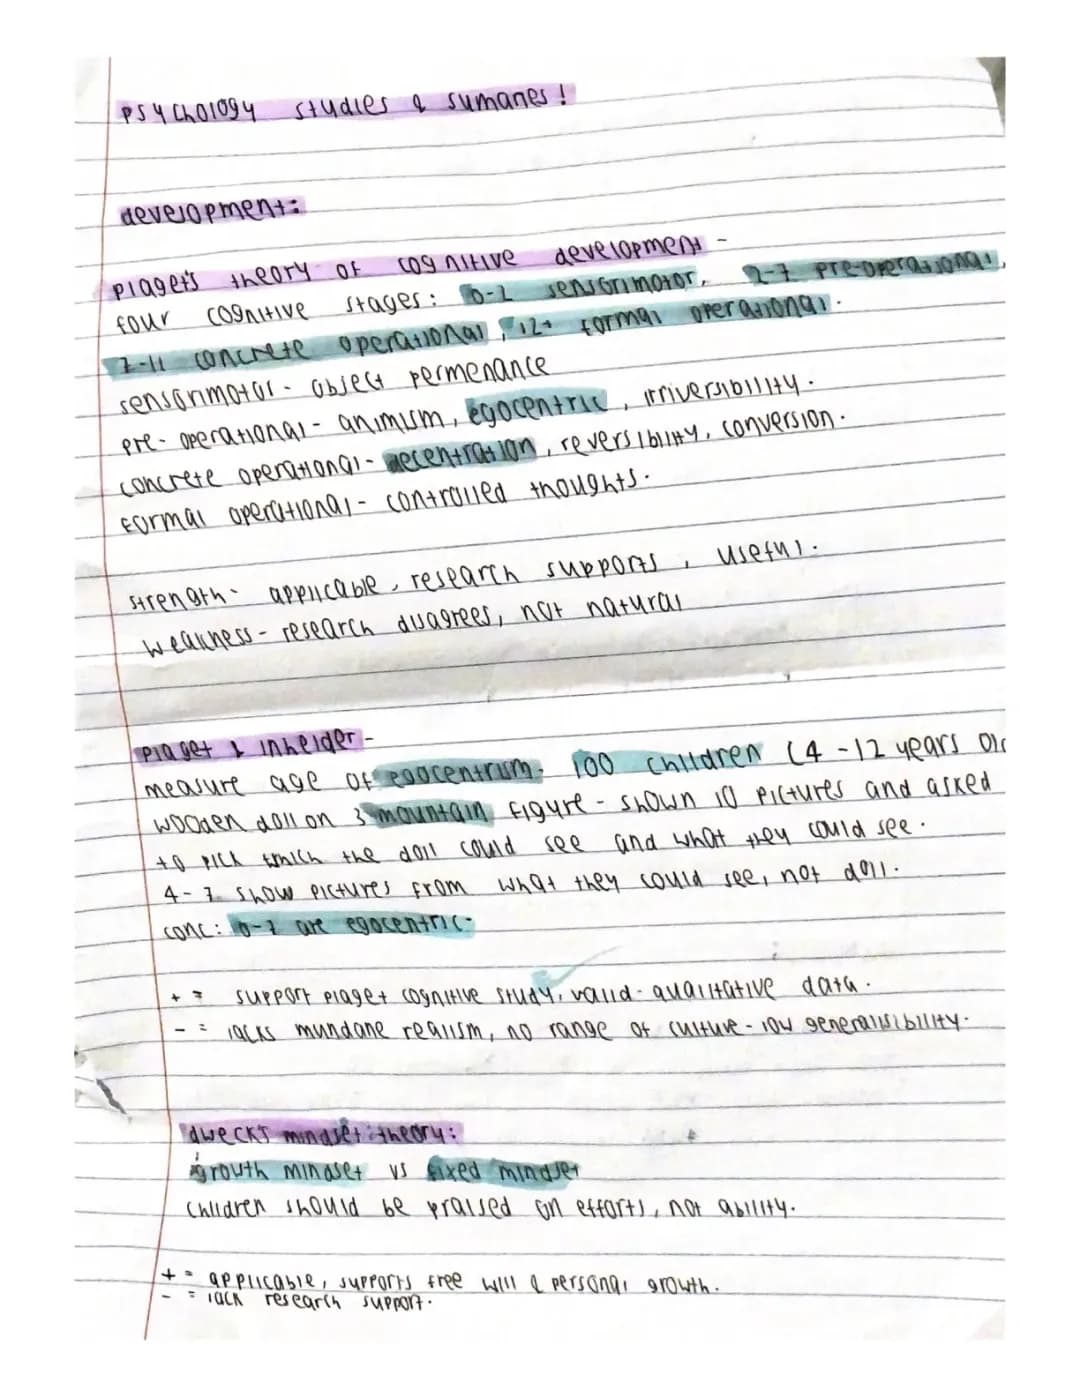 psychology studies & sumaries !
development:
piaget's theory of cognitive development -
four cognitive stages: 0-2 sensorimotor, 2-7 pre-operational,
7-11 concrete operational, 12+ formal operational.
sensorimotor - object permenance
pre-operational - animism, egocentric, irriversibility.
concrete operational - decentration, reversibility, conversion.
formal operational - controlled thoughts.
strength - applicable, research supports, useful.
weakness - research disagrees, not natural
piaget & inhelder -
measure age of egocentrism. 100 children (4-12 years old
wooden doll on 3 mountain figure - shown 10 pictures and asked
to pick which the doll could see and what they could see.
4-7 show pictures from what they could see, not doll.
conc: 0-7 are egocentric.
+ = support piaget cognitive study, valid - qualitative data.
- = lacks mundane realism, no range of culture - low generalisibility.
dweck's mindset theory:
growth mindset vs fixed mindset
children should be praised on efforts, not ability.
+ = applicable, supports free will & personal growth.
- = lack research support.